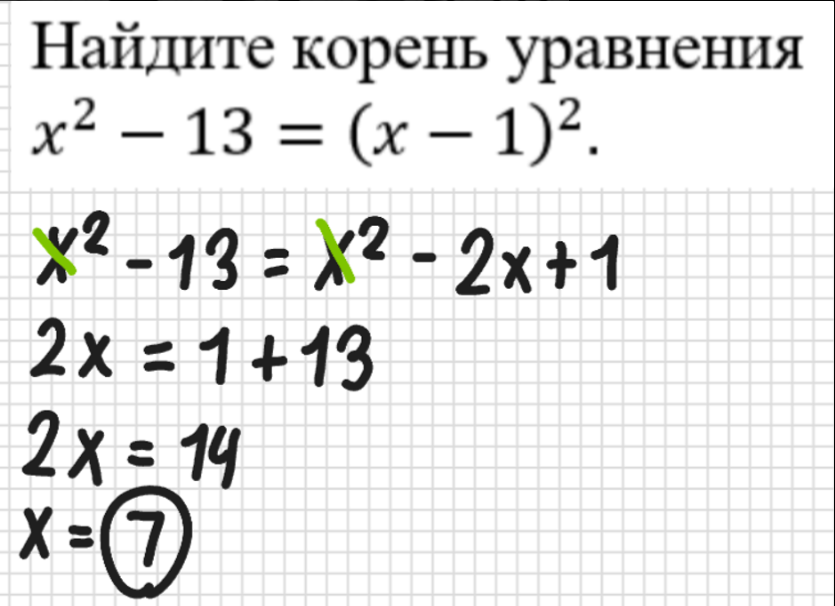 Найдите корень уравнения
x² − 13 = (x − 1)².
x² - 13 = x² - 2x + 1
2x = 1 + 13
2x = 14
x = 7